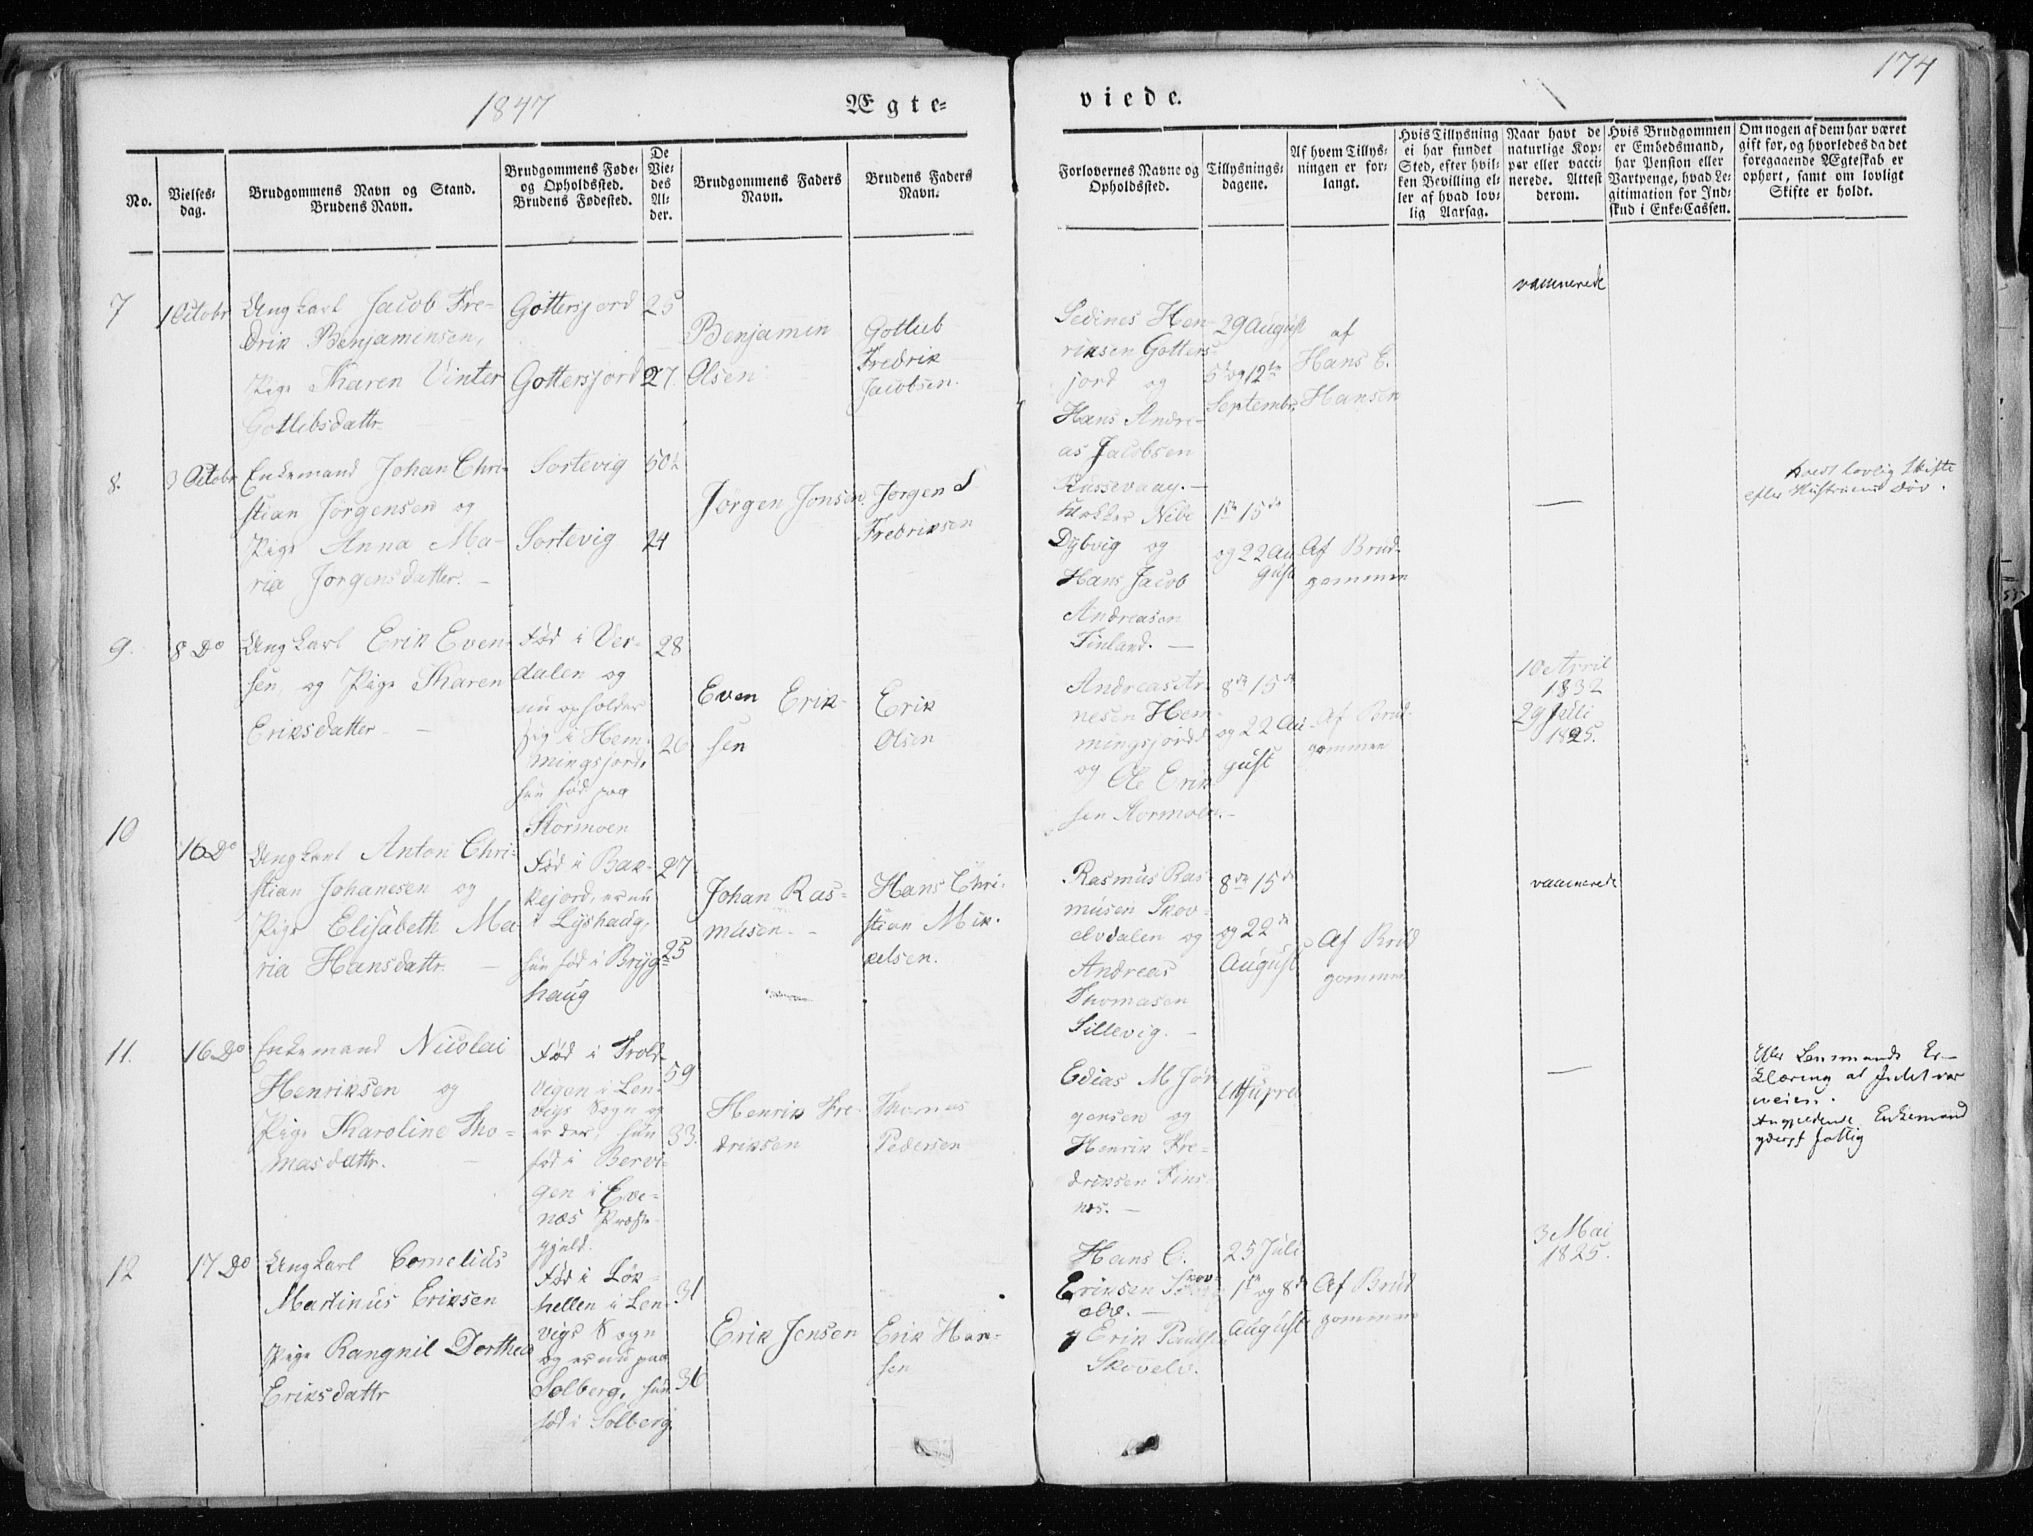 174
1847
Ægte-
viede.
No.
Vielses-
dag.
Brudgommens Navn og Stand.
Brudens Navn.
Brudgommens Føde-
og Opholdssted.
Brudens Fødested.
De
Vie-
des
Al-
der.
Brudgommens Faders
Navn.
Brudens Faders
Navn.
Forlovernes Navne og
Opholdssted.
Tillysnings-
dagene.
Af hvem Tillys-
ningen er for-
langt.
Hvis Tillysning
ei har fundet
Sted, efter hvil-
ken Bevilling el-
ler af hvad lov-
lig Aarsag.
Naar havt de
naturlige Kop-
per eller vacci-
nerede. Attest
derom.
Hvis Brudgommen
er Embedsmand,
har Pension eller
Vartpenge, hvad Le-
gitimation for Ind-
skud i Enke-Cassen.
Om nogen af dem har været
gift før, og hvorledes da det
foregaaende Ægteskab er
ophørt, samt om lovligt
Skifte er holdt.
7
1 Octobr
Ungkarl Jacob Fre-
drik Benjaminsen,
Pige Karen Vinter
Gotlibsdattr
Gottersjord
Gottersjord
25
27.
Benjamin
Olsen
Gotlieb
Fredrik
Jacobsen.
Sedines Hen-
riksen Gotters-
jord og
Hans Andre-
as Jacobsen
29 August
5te og 12te
Septembr.
af
Hans E.
Hansen
vaccinerede
8.
3 Octobr
Enkemand Johan Chri-
stian Jørgensen og
Pige Anna Ma-
ria Jørgensdatter. —
Sortevig
Sortevig
50½
24
Jørgen Jonsen.
Jørgen
Fredriksen
Nibe
Dybvig og
Hans Jacob
Andreasen
Finland. —
1ste 15de
og 22 Au-
gust
Af Brud-
gommen
—
lovlig Skifte
efter Hustruens Død.
9.
8 Do
Ungkarl Erik Even-
sen, og Pige Karen
Eriksdatter —
Fød i Ver-
dalen og
nu opholder
sig i Hem-
mingsjord,
hun fød paa
Stormoen
28
26
Even Erik-
sen
Erik
Olsen
Andreas Ar-
nesen Hem-
mingsjord
og Ole Erik
sen Stormoen. —
8de 15de
og 22 Au-
gust
Af Brud-
gommen
10 April
1832
29 Juli
1825.
10
16 Do
Ungkarl Anton Chri-
stian Johanesen og
Pige Elisabeth Ma-
ria Hansdattr. —
Fød i Bak-
kejord, er nu
i Lyshaug,
hun fød i Bryg-
haug
27
25
Johan Ras-
musen —
Hans Chri-
stian Mik-
kelsen.
Rasmus Ras
musen Skov-
elvdalen og
Andreas
Thomasen
Sillevig. —
8de 15de
og 22de
August
Af Brud
gommen
vaccinerede
11.
16 Do
Enkemand Nicolai
Henriksen og
Pige Karoline Tho-
masdattr. —
Fød i Trold-
vigen i Len-
vigs Sogn og
er der, hun
fød i Bervi-
gen i Eve-
næs Præste-
gjeld.
59
33.
Henrik Fre-
driksen
Thomas
Pedersen
Edias M. Jør
gensen og
Henrik Fre-
driksen Fins-
nes. —
—
Efter Lensmands Er-
klæring at Intet var
Angjeldende Enkemand
yderst fattig
12
17 Do
Ungkarl Cornelius
Martinus Eriksen
Pige Rangnil Dorthea
Eriksdattr
Fød i Løk-
hellen i Len-
vigs Sogn
og er nu paa
Solberg, hun
fød i Solberg.
31
36
Erik Jensen
Erik Han-
sen
Hans C.
Eriksen Skov-
elv. —
Erik Paulsen
Skovelv.
25 Juli
1ste og 8de
August
Af Brud
gommen
3 Mai
1825.